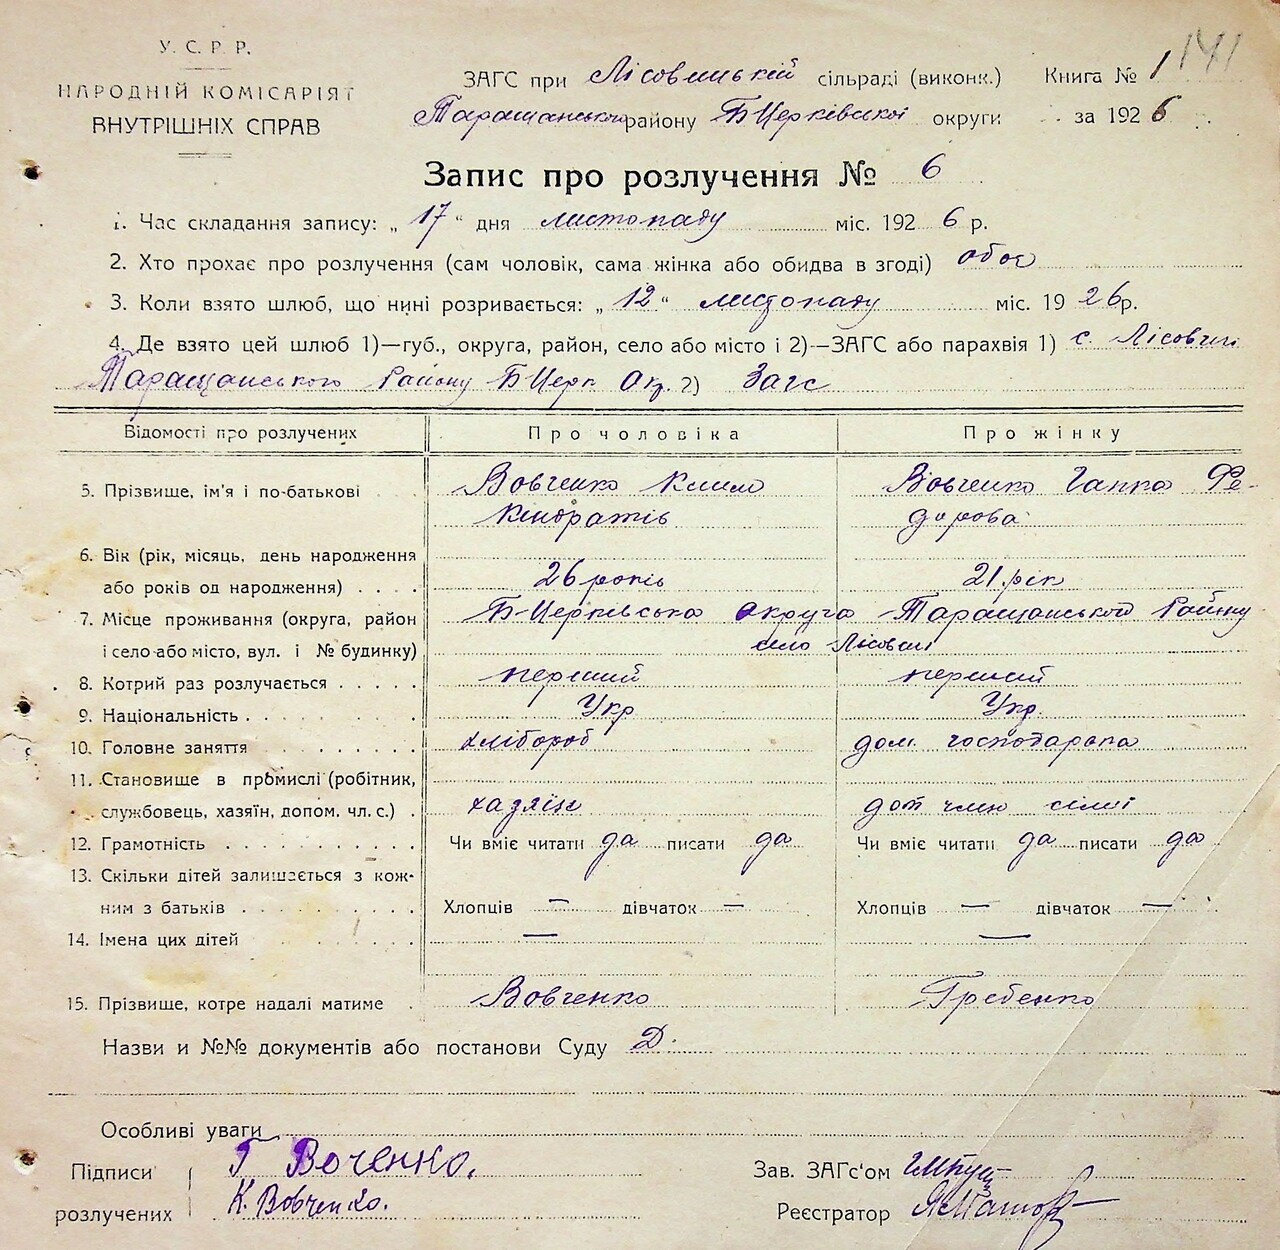 У. С. Р. Р.
НАРОДНІЙ КОМІСАРІЯТ
ВНУТРІШНІХ СПРАВ
ЗАГС при Лісовицькій сільраді (виконк.) Книга № 1 141
Таращанського району Б Церківської округи за 1926
Запис про розлучення № 6
1. Час складання запису: „17“ дня листопаду міс. 1926 р.
2. Хто прохає про розлучення (сам чоловік, сама жінка або обидва в згоді) обоє
3. Коли взято шлюб, що нині розривається: „12“ листопаду міс. 1926р.
4. Де взято цей шлюб 1)—губ., округа, район, село або місто і 2)—ЗАГС або парахвія 1) с. Лісовичі
Таращанського Району Б Церк Окр. 2) Загс
Відомості про розлучених Про чоловіка Про жінку
5. Прізвище, ім'я і по-батькові Вовченко Клим Вовченко Гапка Фе-
Кіндратів дорова
6. Вік (рік, місяць, день народження
або років од народження) 26 років 21 рік
7. Місце проживання (округа, район Б-Церківська округа Таращанського Району
і село або місто, вул. і № будинку) село Лісовичі
8. Котрий раз розлучається перший перший
9. Національність Укр Укр.
10. Головне заняття хлібороб дом. господарка
11. Становище в промислі (робітник,
службовець, хазяїн, допом. чл. с.) хазяїн доп член сімї
12. Грамотність Чи вміє читати да писати да Чи вміє читати да писати да
13. Скільки дітей залишається з кож-
ним з батьків Хлопців — дівчаток — Хлопців — дівчаток —
14. Імена цих дітей — —
15. Прізвище, котре надалі матиме Вовченко Гребенко
Назви и №№ документів або постанови Суду
Особливі уваги
Підписи Г Воченко. Зав. ЗАГс'ом
розлучених К. Вовченко. Реєстратор